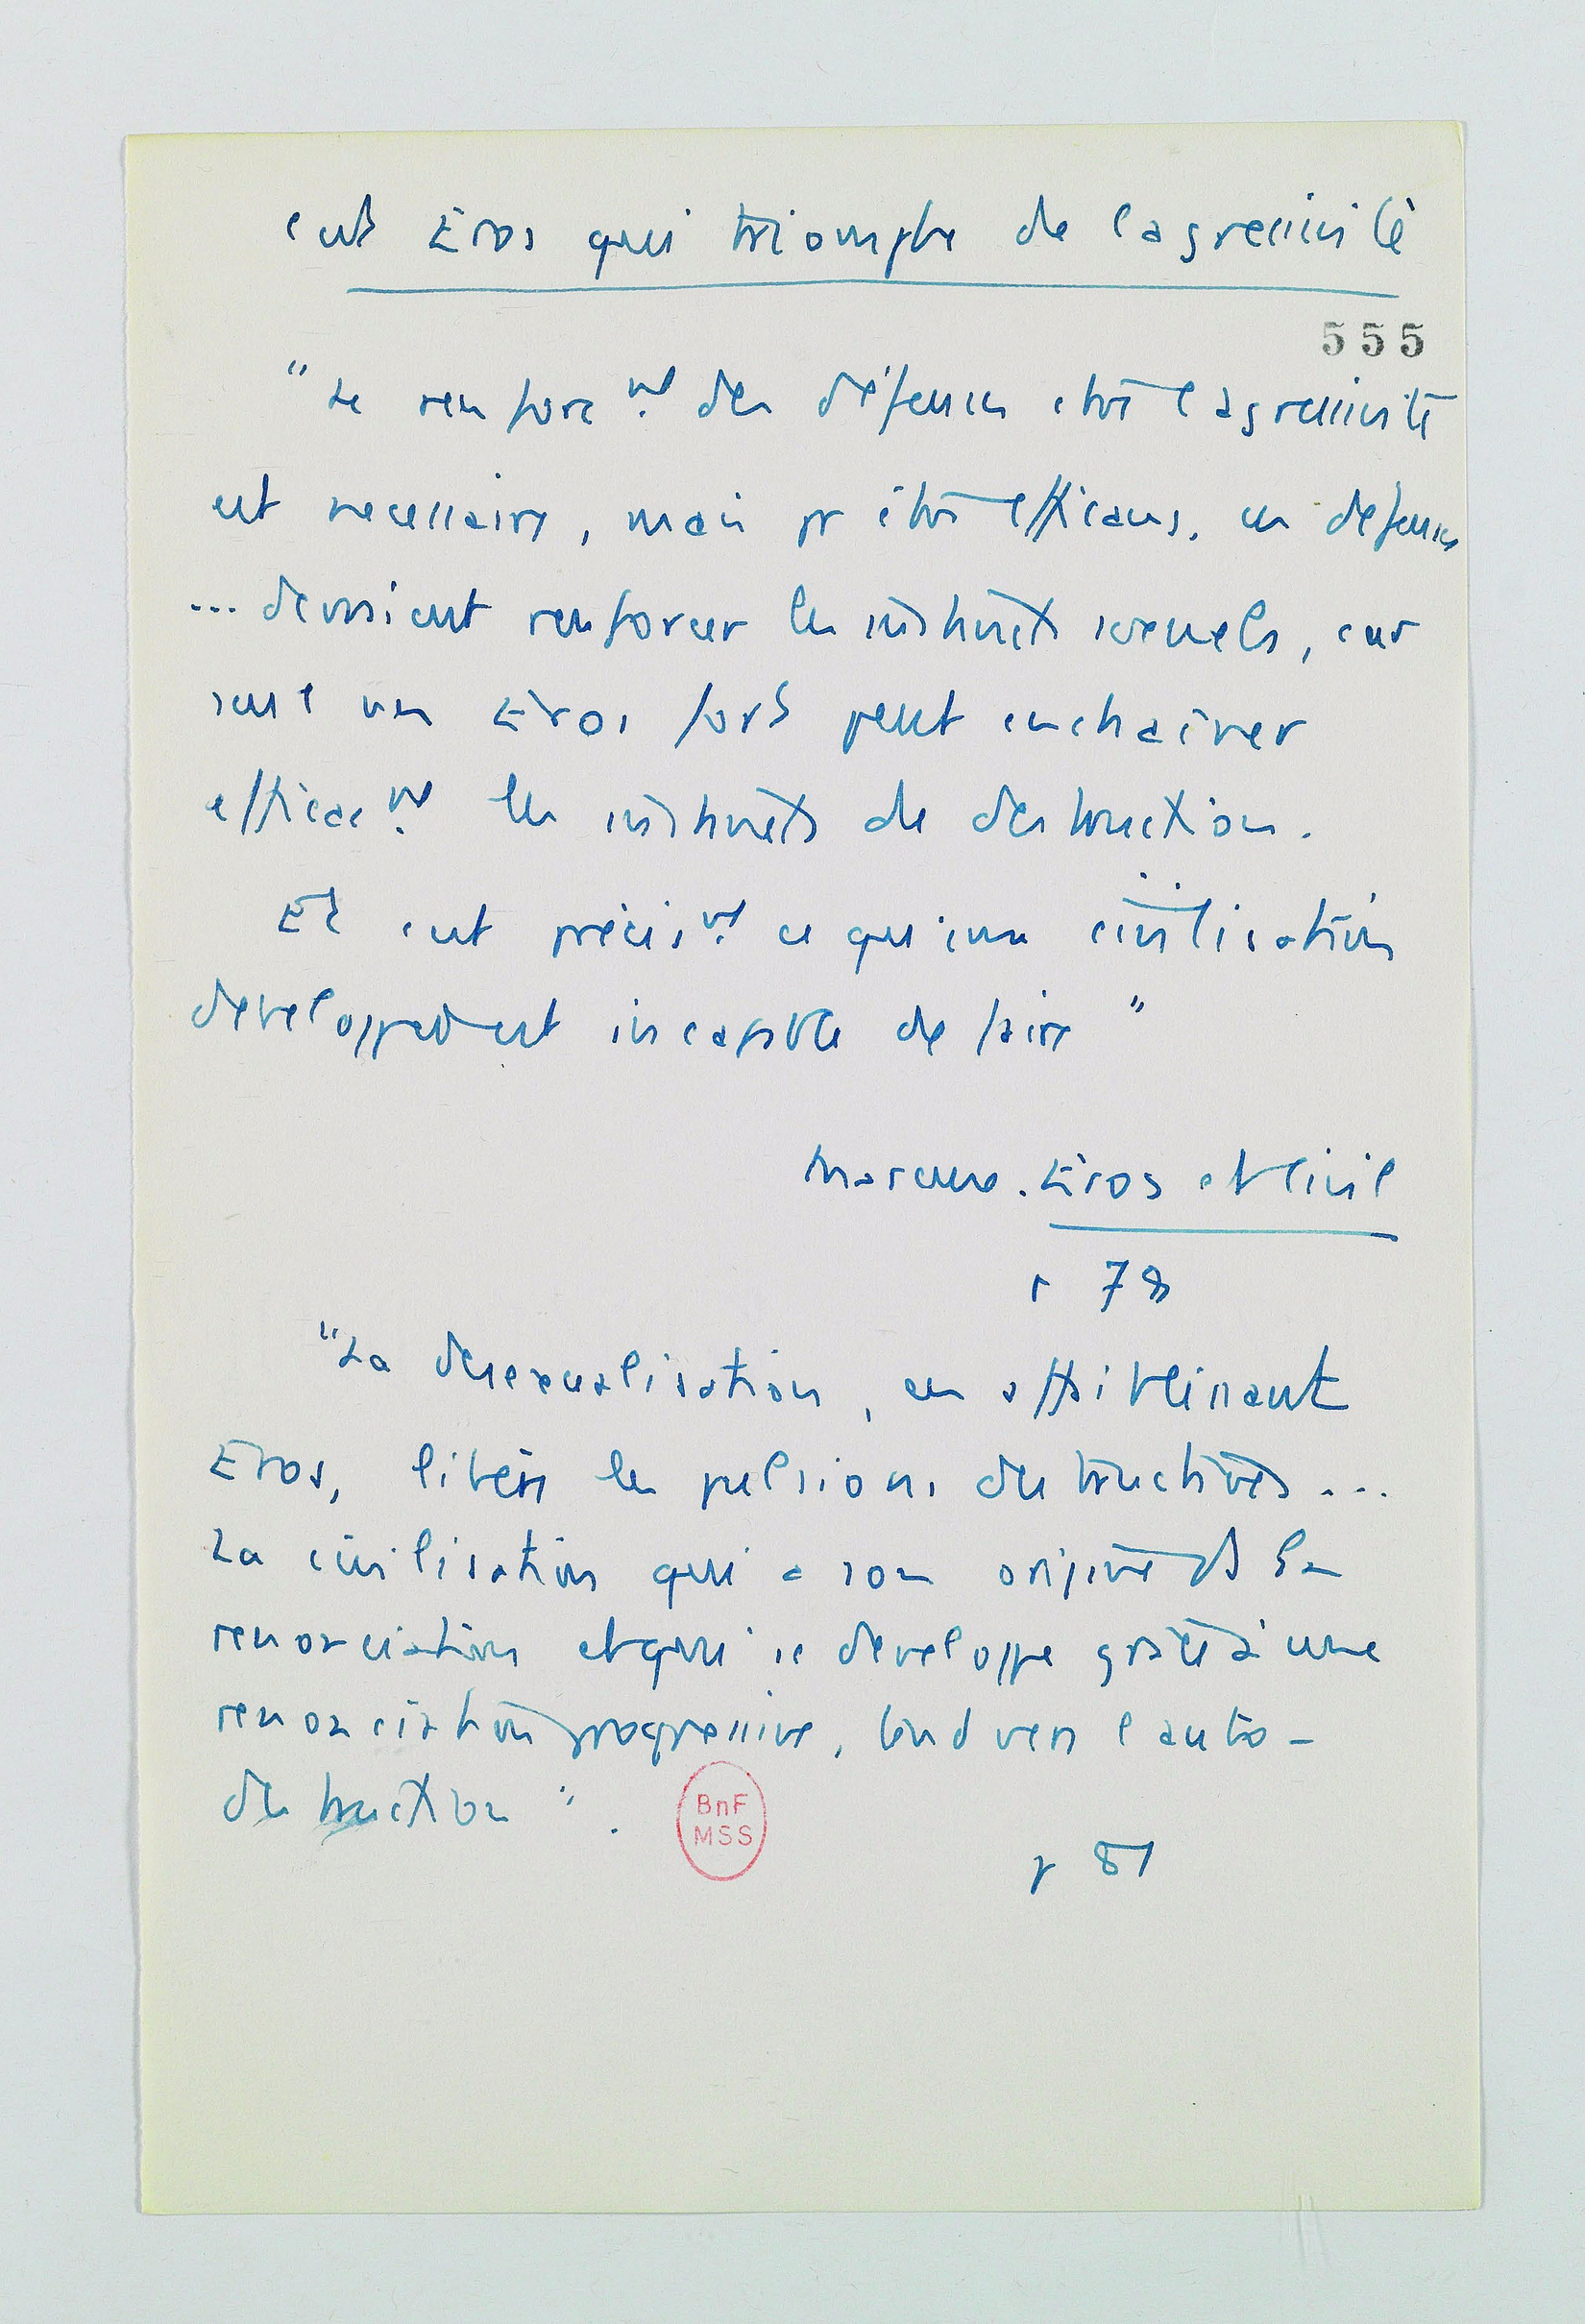 c'est Eros qui triomphe de l'agressivité
555
"Le renforc^mt des défenses ctre l'agressivité
est necessaire, mais pr être efficaces, ces defenses
... devraient renforcer les instincts sexuels, car
seul un Eros fort peut enchaîner
efficac^mt les instincts de destruction.
Et c'est précis^mt ce qu'une civilisation
developpée est incapable de faire"
Marcuse. Eros et Civil
p 78
"La desexualisation, en affaiblissant
Eros, libère les pulsions destructives ...
La civilisation qui a son origine ds la
renonciation et qui se developpe grâce à une
renonciation progressive, tend vers l'auto-
destruction".
BnF
MSS
p 81